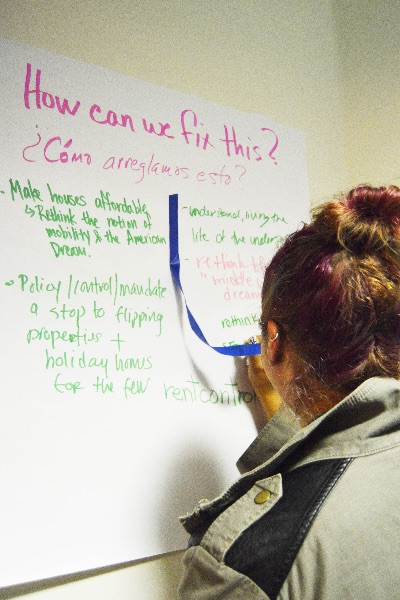 How can we fix this?
¿Cómo arreglamos esto?
- Make houses affordable,
↳ Rethink the notion of
mobility & the American
Dream.
• Policy/control/mandate
a stop to flipping
properties +
holiday homes
for the few
rent control
- understand, living the
life of the
- rethink the
"middle
dream
rethink